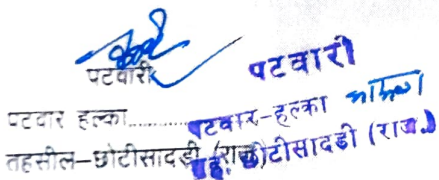 पटवारी पटवारी
पटवार हल्का............ पटवार-हल्का
तहसील–छोटीसादड़ी (राज.) तह. छोटीसादडी (राज.)